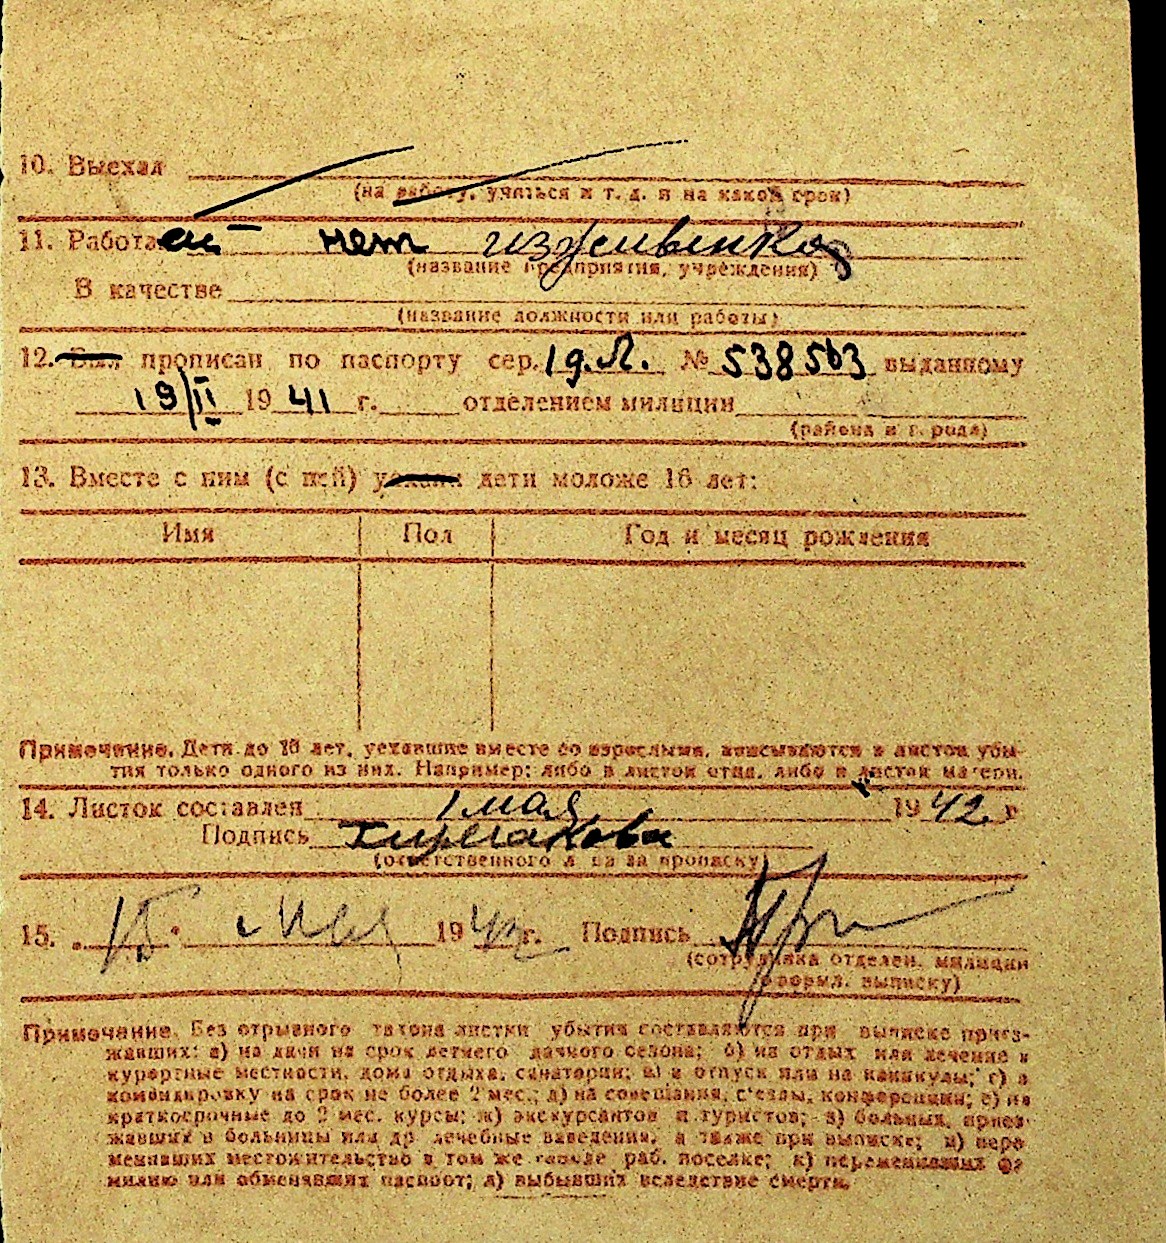 10. Выехал
(на работу, учиться и т. д. и на какой срок)
11. Работа нет иждивенка
(название предприятия, учреждения)
В качестве
(название должности или работы)
12. Был прописан по паспорту сер. № 538563 выданному
19/II 1941 г. отделением милиции
(района и города)
13. Вместе с ним (с ней) уехали дети моложе 16 лет:
Имя Пол Год и месяц рождения
Примечание. Дети до 16 лет, уехавшие вместе со взрослыми, вписываются в листок убы-
тия только одного из них. Например: либо в листок отца, либо в листок матери.
14. Листок составлен 1 мая 1942 г
Подпись
(ответственного лица за прописку)
15. „15" мая 1942 г. Подпись
(сотрудника отделен. милиции
оформл. выписку)
Примечание. Без отрывного талона листки убытия составляются при выписке приез-
жавших: а) на дачи на срок летнего дачного сезона; б) на отдых или лечение в
курортные местности, дома отдыха, санатории; в) в отпуск или на каникулы; г) в
командировку на срок не более 2 мес.; д) на совещания, съезды, конференции; е) на
краткосрочные до 2 мес. курсы; ж) экскурсантов и туристов; з) больных, приез-
жавших в больницы или др. лечебные заведения, а также при выписке; и) пере
менивших местожительство в том же городе, раб. поселке; к) переменивших фа
милию или обменявших паспорт; л) выбывших вследствие смерти.